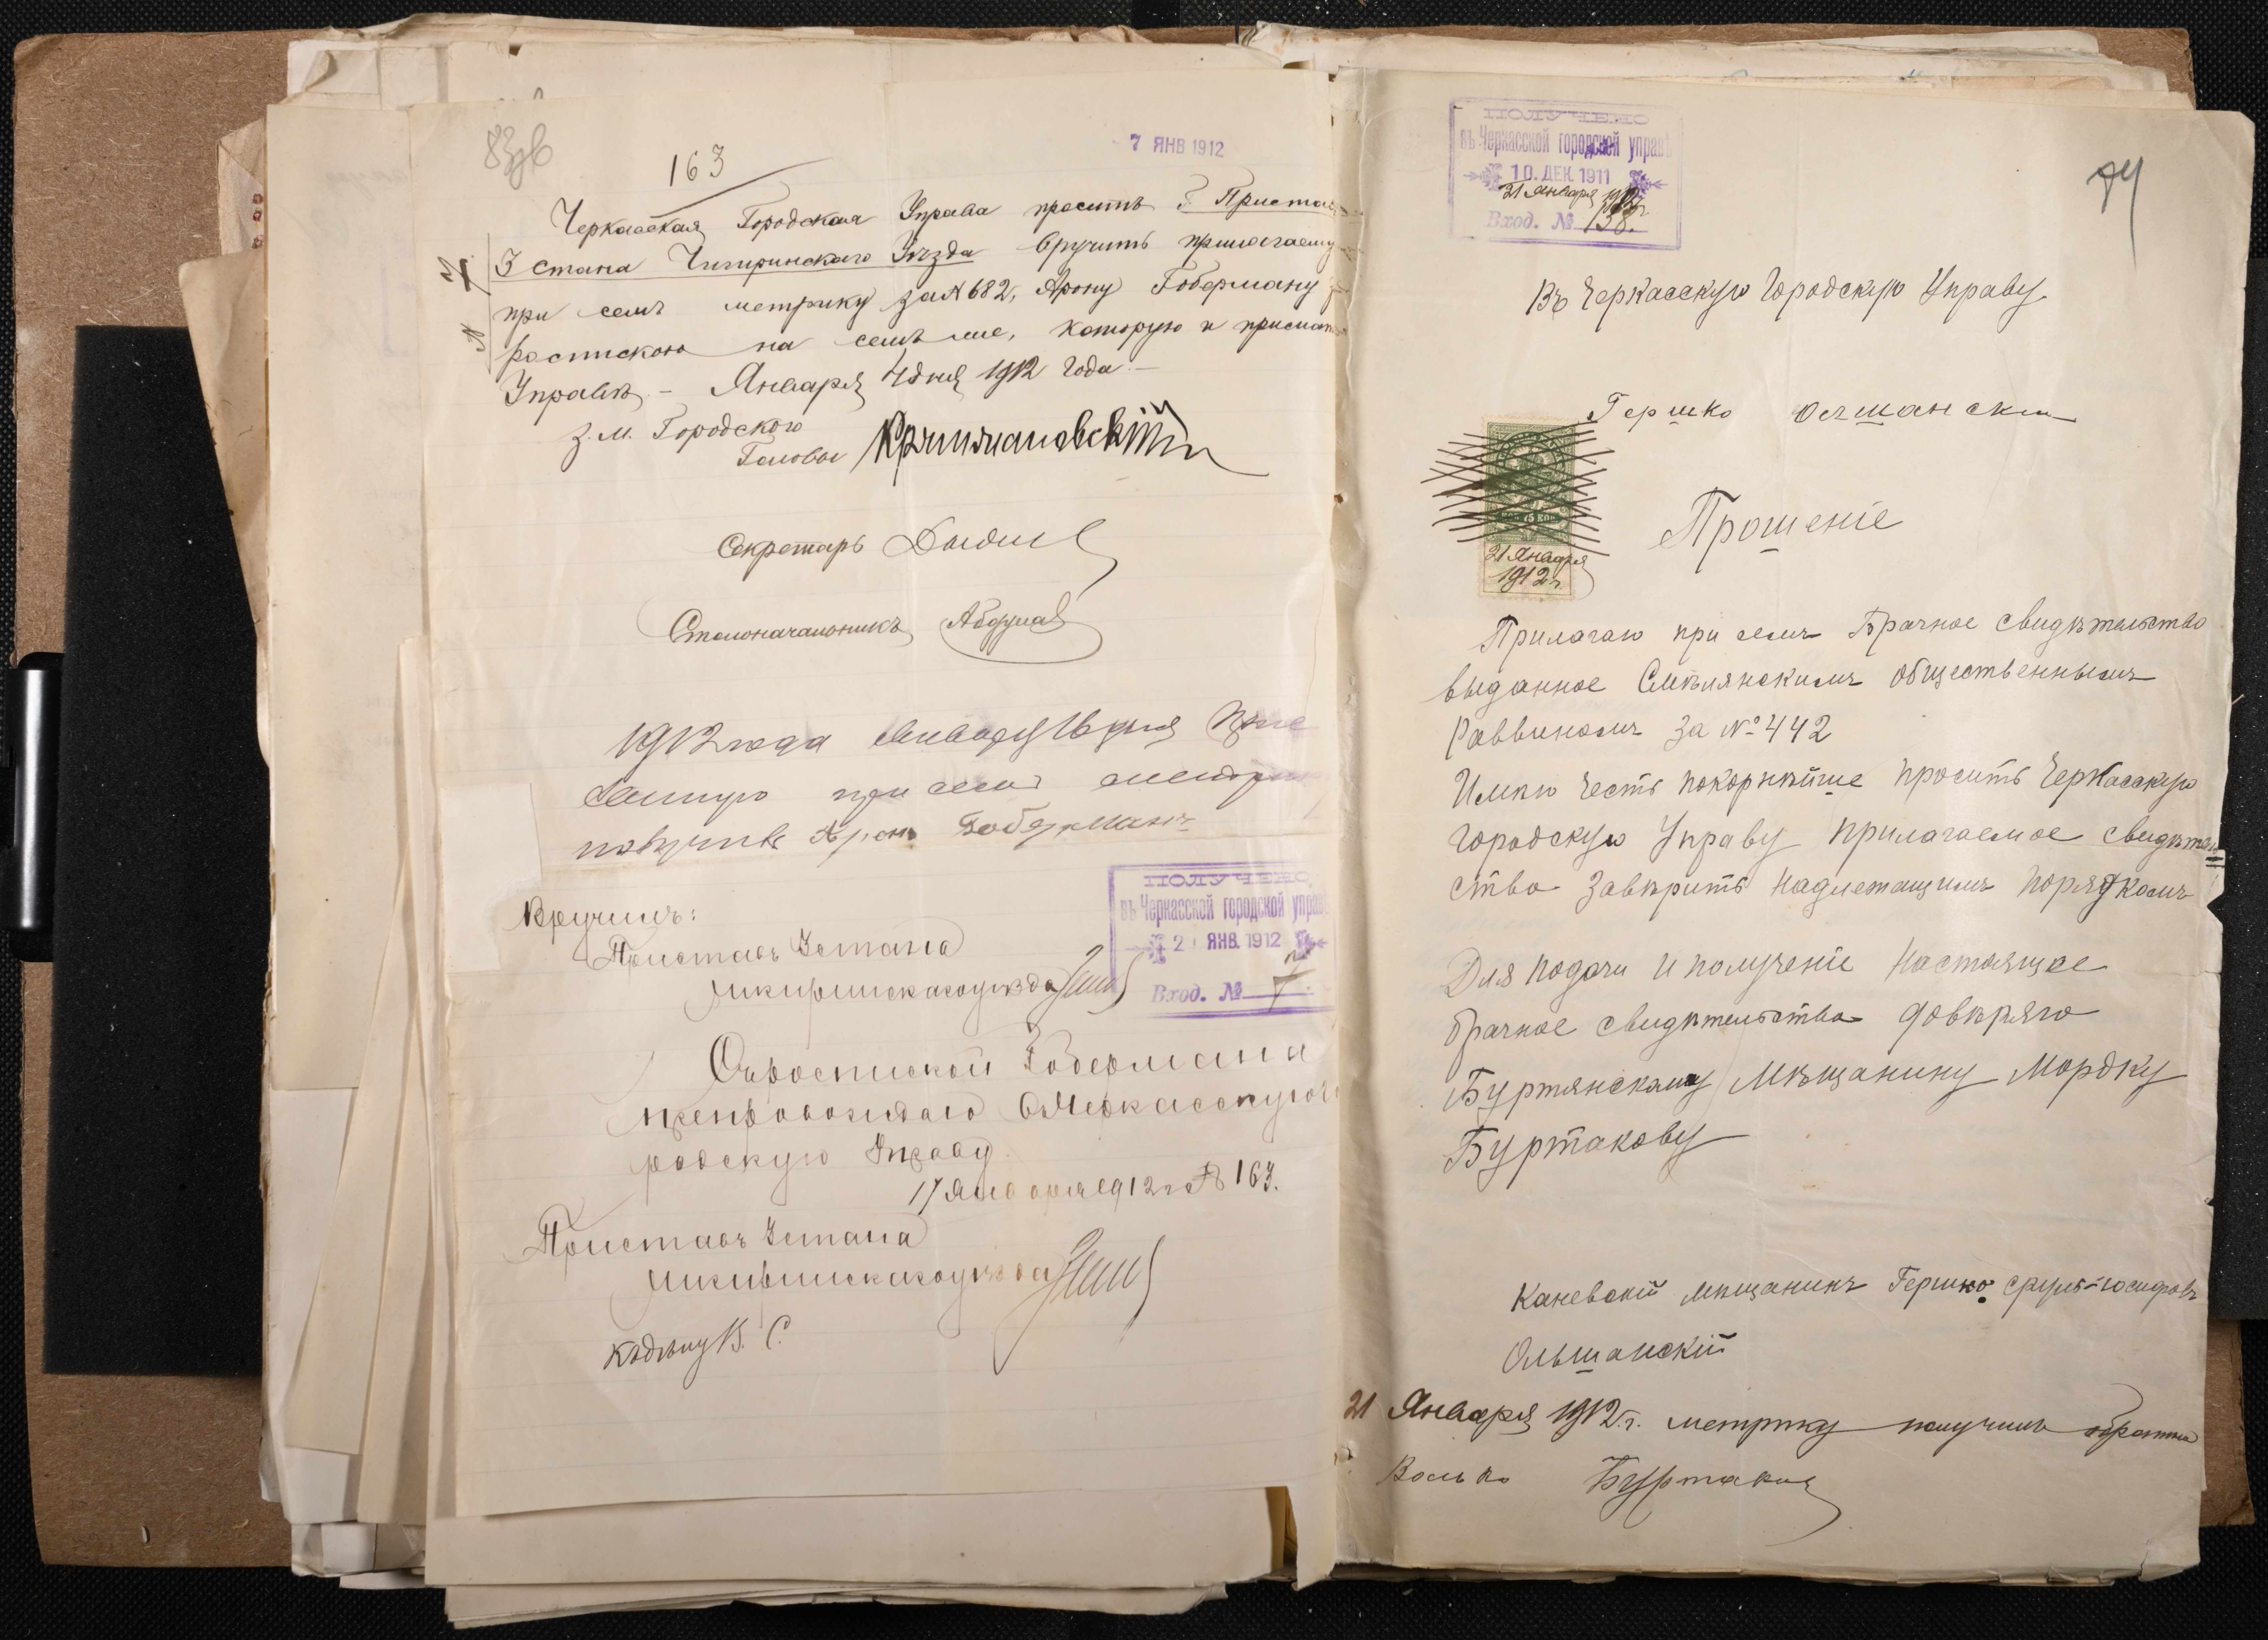 83 об
163
7 ЯНВ 1912
Черкасская Городская Управа просить Г. Пристава
3 стана Чигиринскаго Уѣзда вручить прилагаемую
при семъ метрику за № 682, Арону Гоберману
роспискою на семъ же, которую и прислать
Управѣ. – Января 4 дня 1912 года. –
№ 7
З. м. Городского
Головы
Секретарь
Столоначальникъ
1912 года Января 16 дня
при семъ
Аронъ Гоберманъ
Вручилъ:
Приставъ 3 стана
Чигиринскаго уѣзда
ПОЛУЧЕНО
въ Черкасской городской управѣ
2 ЯНВ. 1912
Вход. № 7
Съ роспиской Гобермана
препровождаю въ Черкасскую Го
родскую Управу
17 Января 1912 г. № 163.
Приставъ 3 стана
Чигиринскаго уѣзда
Къ дѣлу
ПОЛУЧЕНО
въ Черкасской городской управѣ
10. ДЕК. 1911
21 Января 1912 г.
Вход. № 138.
Въ Черкасскую Городскую Управу
Гершко
75 КОП.
21 Января
1912 г.
Прошеніе
Прилагаю при семъ Брачное свидѣтельство
выданное Смѣлянскимъ общественнымъ
Раввиномъ за № 442
Имѣю честь покорнѣйше просить Черкасскую
Городскую Управу прилагаемое свидѣтель
ство завѣрить надлежащимъ порядкомъ
Для подачи и полученіе настоящее
брачное свидѣтельство довѣряю
Буртянскому Мѣщанину Мордку
Буртакову
Каневскій мѣщанинъ Гершко Сруль-Іосифовъ
Ольшанскій
21 Января 1912 г. метрику получилъ обратно